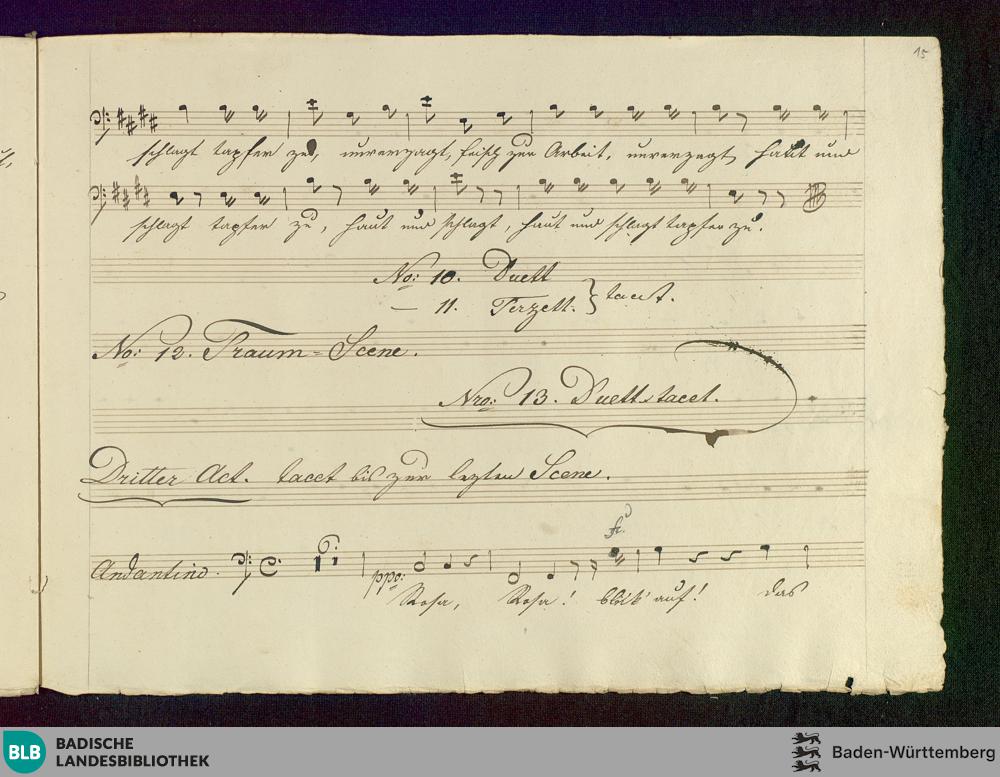 15
schlagt tapfer zu, unverzagt, frisch zur Arbeit, unverzagt, haut und
schlagt tapfer zu, haut und schlagt, haut und schlagt tapfer zu.
No: 10. Duett
— 11. Terzett. } tacet.
No: 12. Traum=Scene.
Nro: 13. Duett tacet.
Dritter Act. tacet bis zur lezten Scene.
Andantino.
ppo:
Rosa, Rosa! blick' auf! das
BLB BADISCHE
LANDESBIBLIOTHEK
Baden-Württemberg